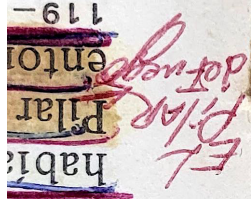 habia
Pilar
entor
119-
EL
PILAR
de Fuego